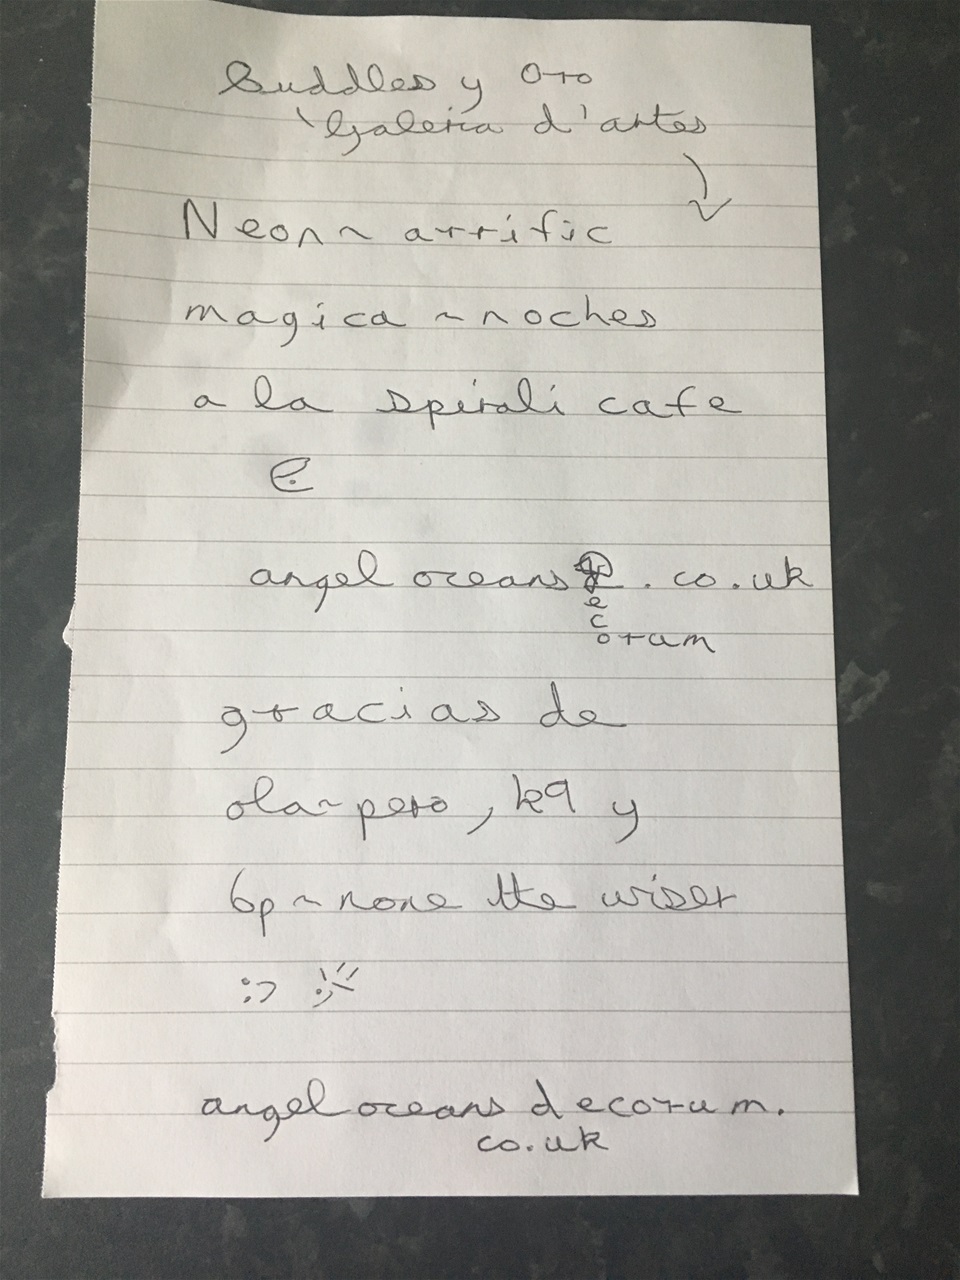 Buddles y Oro
Galeria d'artes
Neon~arrific
magica~noches
a la spirali cafe
e
angel oceans .co.uk
e
c
orum
gracias de
ola~pero, k9 y
6p~none the wiser
:>
angel oceans decorum.
co.uk